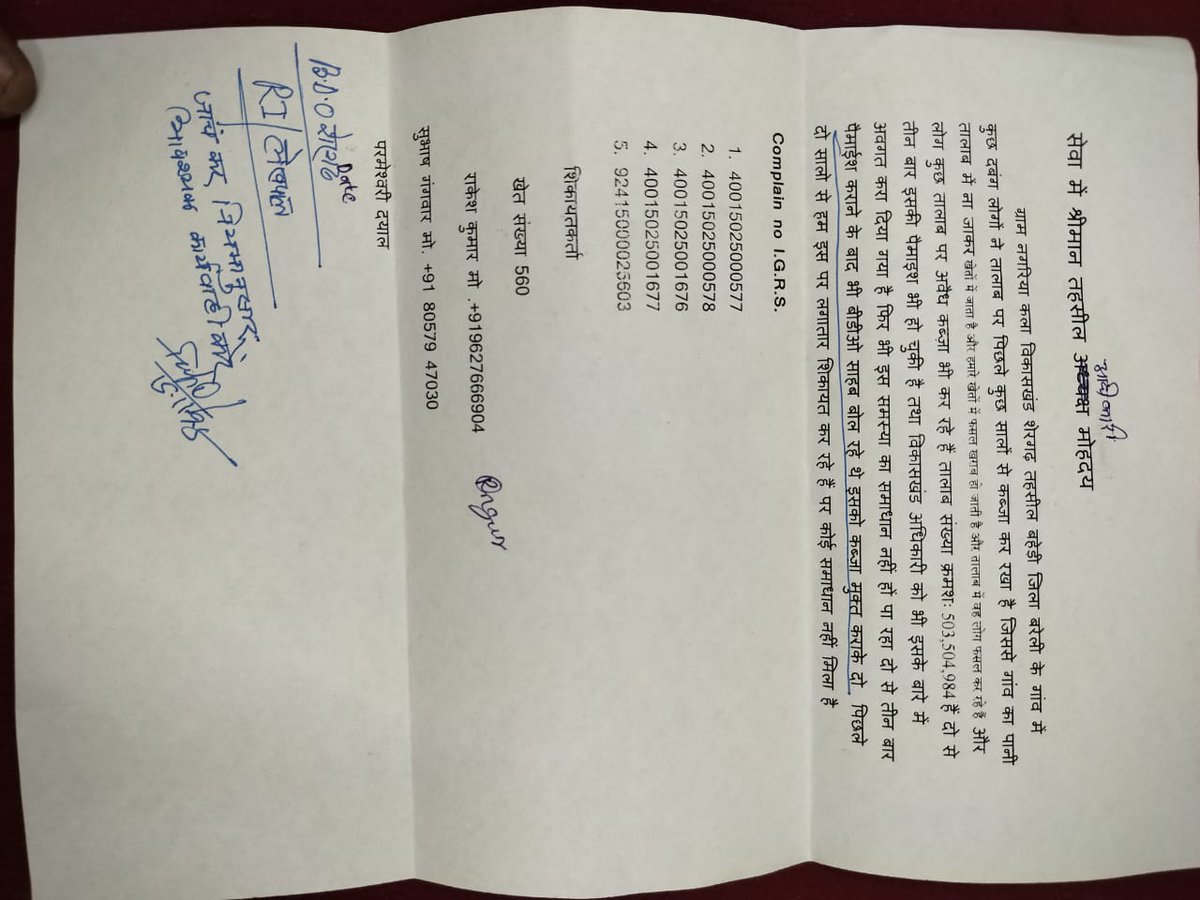 सेवा में श्रीमान तहसील अध्यक्ष मोहदय
अधिकारी
ग्राम नगरिया कला विकासखंड शेरगढ़ तहसील बहेड़ी जिला बरेली के गांव में
कुछ दबंग लोगों ने तालाब पर पिछले कुछ सालों से कब्जा कर रखा है जिससे गांव का पानी
तालाब में ना जाकर खेतों में जाता है और हमारे खेतों में फसल खराब हो जाती है और तालाब में वह लोग फसल कर रहे हैं और
लोग कुछ तालाब पर अवैध कब्ज़ा भी कर रहे हैं तालाब संख्या क्रमश: 503,504,984 हैं दो से
तीन बार इसकी पैमाइश भी हो चुकी है तथा विकासखंड अधिकारी को भी इसके बारे में
अवगत करा दिया गया है फिर भी इस समस्या का समाधान नहीं हों पा रहा दो से तीन बार
पैमाईश कराने के बाद भी बीडीओ साहब बोल रहे थे इसको कब्ज़ा मुक्त कराके दो पिछले
दो सालो से हम इस पर लगातार शिकायत कर रहे हैं पर कोई समाधान नहीं मिला है
Complain no I.G.R.S.
1. 40015025000577
2. 40015025000578
3. 40015025001676
4. 40015025001677
5. 92415000025603
शिकायतकर्ता
खेत संख्या 560
राकेश कुमार मो .+919627666904
सुभाष गंगवार मो. +91 80579 47030
परमेश्वरी दयाल
B.D.O शेरगढ़
Date
RI/लेखपाल
जांच कर नियमानुसार
आवश्यक कार्यवाही करें